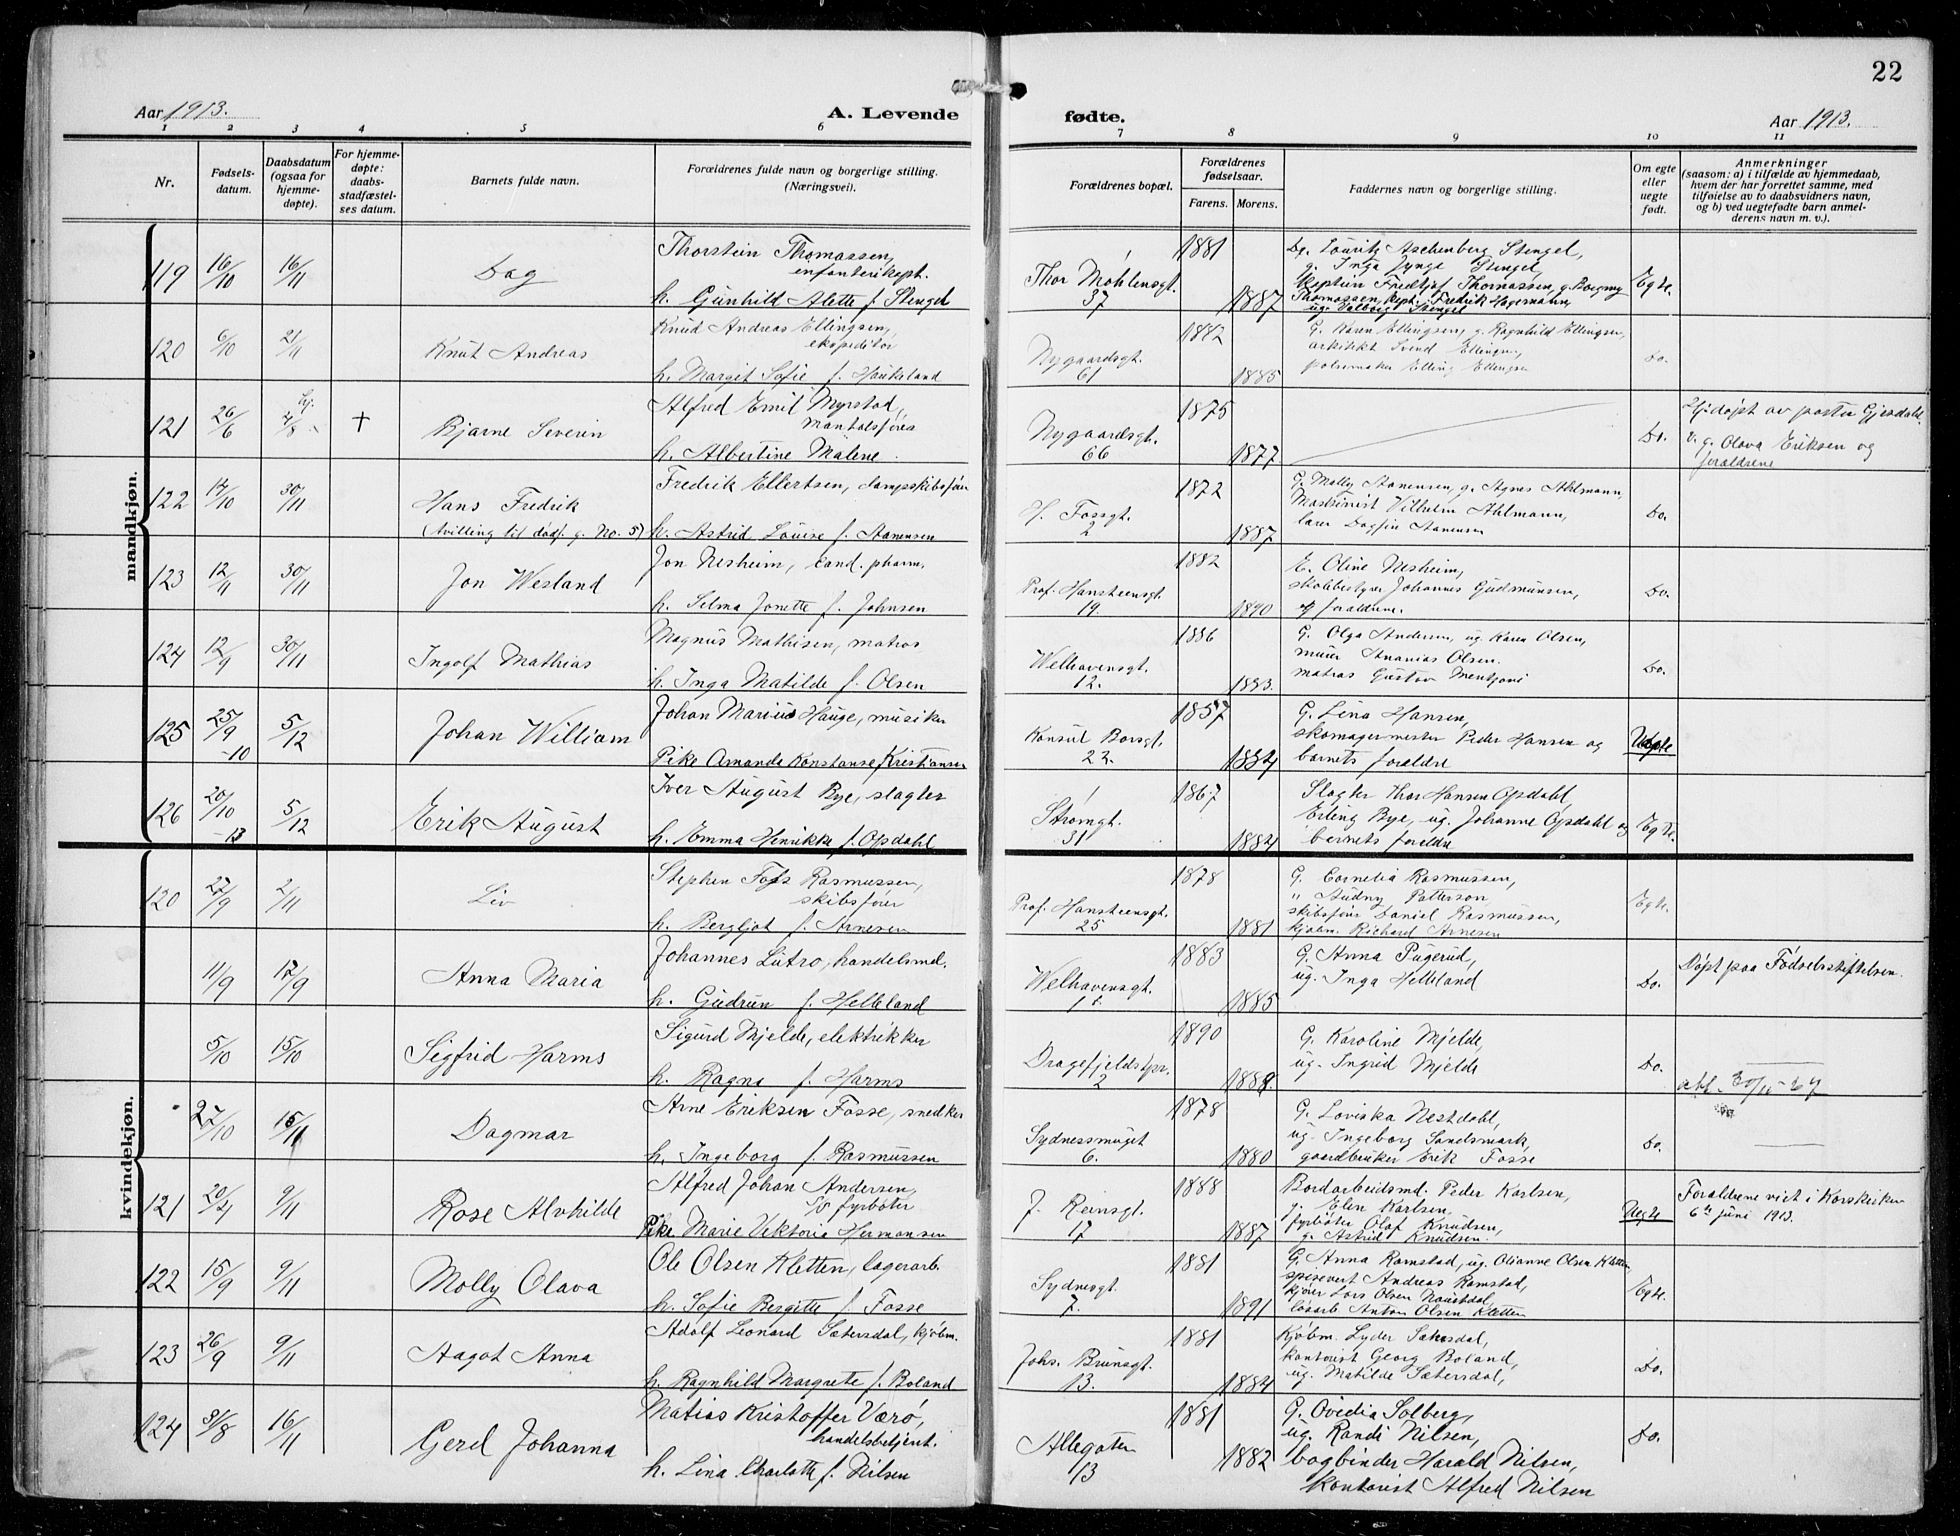 22
Aar 1913.
A. Levende
fødte.
Aar 1913.
1 2 3 4 5 6 7 8 9 10 11
Nr.
Fødsels-
datum.
Daabsdatum
(ogsaa for
hjemme-
døpte).
For hjemme-
døpte:
daabs-
stadfæstel-
ses datum.
Barnets fulde navn.
Forældrenes fulde navn og borgerlige stilling.
(Næringsvei).
Forældrenes bopæl.
Forældrenes
fødselsaar.
Farens. Morens.
Faddernes navn og borgerlige stilling.
Om egte
eller
uegte
født.
Anmerkninger
(saasom: a) i tilfælde av hjemmedaab,
hvem der har forrettet samme, med
tilføielse av to daabsvidners navn,
og b) ved uegtefødte barn anmel-
derens navn m. v.).
mandkjøn.
119 16/10 16/11 Dag
Thorstein Thomassen,
h. Gunhild Alette f. Stengel
Thor Møhlensgt.
37
1881 1887
Inga Stengel,
Egte.
120 6/10 21/11 Knut Andreas
Knud Andreas Ellingsen,
ekspeditør
h. Margit Sofie f. Haukeland
Nygaardsgt.
61
1882 1885
G. Karen Ellingsen, g. Ragnhild Ellingsen,
arkitekt Svend Ellingsen,
pølsemaker Elling Ellingsen
Do.
121 26/6 hj. 4/8 + Bjarne Severin
Alfred Emil Myrstad,
h. Albertine Malene
Nygaardsgt.
66
1875 1877
Do.
Hj.døpt av pastor Gjesdahl
v. g. Olava Eriksen og
forældrene
122 17/10 30/11 Hans Fredrik
(tvilling til dødf. g. No. 5)
Fredrik Ellertsen, dampskibsfører
h. Astrid Louise f. Aanensen
H. Fossgt.
2
1872 1887
G. Molly Aanensen, g. Agnes Ahlmann,
Maskinist Vilhelm Ahlmann,
lærer Dagfin Aanensen
Do.
123 12/11 30/11 Jon Wesland
Jon Nesheim, cand. pharm.
h. Selma Jonette f. Johnsen
Prof. Hansteensgt.
19.
1882 1890
E. Oline Nesheim,
skolebestyrer Johannes Gudmunsen,
og forældrene.
Do.
124 12/9 30/11 Ingolf Mathias
Magnus Mathisen, matros
h. Inga Matilde f. Olsen
Welhavensgt.
12.
1886 1883.
G. Olga Andersen, ug. Karen Olsen,
murer Ananias Olsen.
matros Gustav
Do.
125 25/9 -10 5/12 Johan William
Johan Marius Hauge, musiker
Pike Amanda Konstanse Kristiansen
Konsul Børsgt.
22.
1857 1884
G. Lina Hansen,
skomagermester Peder Hansen og
barnets forældre
Uegte
126 20/10 -13 5/12 Erik August
Iver August Bye, slagter
h. Emma Henrikke f. Opdahl
Strømgt.
31
1867 1884
Slagter Thor Hansen Opdahl,
Erling Bye, ug. Johanne Opdahl og
barnets forældre
Egte.
kvindekjøn.
120 27/9 2/11 Liv
Stephen Foss Rasmussen,
skibsfører
h. Bergljot f. Arnesen
Prof. Hansteensgt.
25
1878 1881
G. Cornelia Rasmussen,
" Audny Patterson
skibsfører Daniel Rasmussen,
kjøbm. Richard Arnesen
Egte.
11/9 17/9 Anna Maria
Johannes Lutro, handelsmd.
h. Gudrun f. Helleland
Welhavensgt.
1883 1885
G. Anna Fugerud,
ug. Inga Helleland
Do.
Døpt paa Fødselsstiftelsen.
5/10 15/10 Sigfrid Harms
Sigurd Mjelde, elektriker
h. Ragna f. Harms
Dragefjeldstpr.
2
1890 1888.
G. Karoline Mjelde,
ug. Ingrid Mjelde
Do.
27/10 15/11 Dagmar
Arne Eriksen Fosse, snedker
h. Ingeborg f. Rasmussen
Sydnessmuget
6.
1878 1880
G. Loviska Nestdahl,
ug. Ingeborg Sandsmark,
gaardbruker Erik Fosse
Do.
121 20/4 9/11 Rose Alvhilde
Alfred Johan Andersen,
fyrbøter
Pike Marie Viktoria Hermansen
J. Reinsgt.
17
1888 1887
Bordarbeidsmd. Peder Karlsen,
g. Elen Karlsen,
fyrbøter Olaf Knudsen,
g. Astrid Knudsen.
Uegte
Forældrene viet i Korskirken
6te juni 1913.
122 15/9 9/11 Molly Olava
Ole Olsen Kletten, lagerarb.
h. Sofie Bergitte f. Fosse
Sydnesgt.
7.
1881 1891
G. Anna Ramstad, ug. Olianne Olsen Kletten
spisevert Andreas Ramstad,
kjører Lars Olsen Naustdal,
løsarb. Anton Olsen Kletten
Egte.
123 26/9 9/11 Aagot Anna
Adolf Leonard Sætersdal, kjøbm.
h. Ragnhild Margrete f. Boland
Johs. Brunsgt.
13.
1881 1884
Kjøbm. Lyder Sætersdal,
kontorist Georg Boland,
ug. Matilde Sætersdal,
Do.
124 31/8 16/11 Gerd Johanna
Matias Kristoffer Værø,
handelsbetjent.
h. Lina Charlotte f. Nilsen
Allegaten
13
1881 1882
G. Ovedia Solberg,
ug. Randi Nilsen,
bogbinder Harald Nilsen,
kontorist Alfred Nilsen
Do.